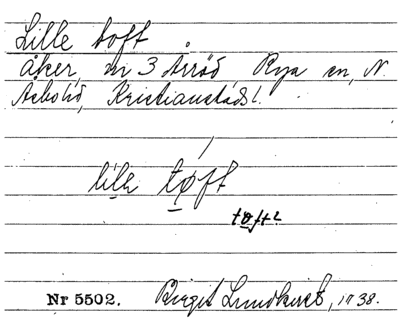 Lille toft
åker, nr 3 Årröd Rya sn, N.
Åsbo hd, Kristianstads l.
lile tøft
tøft?
Nr 5502. Birgit Lundkvist, 1938.